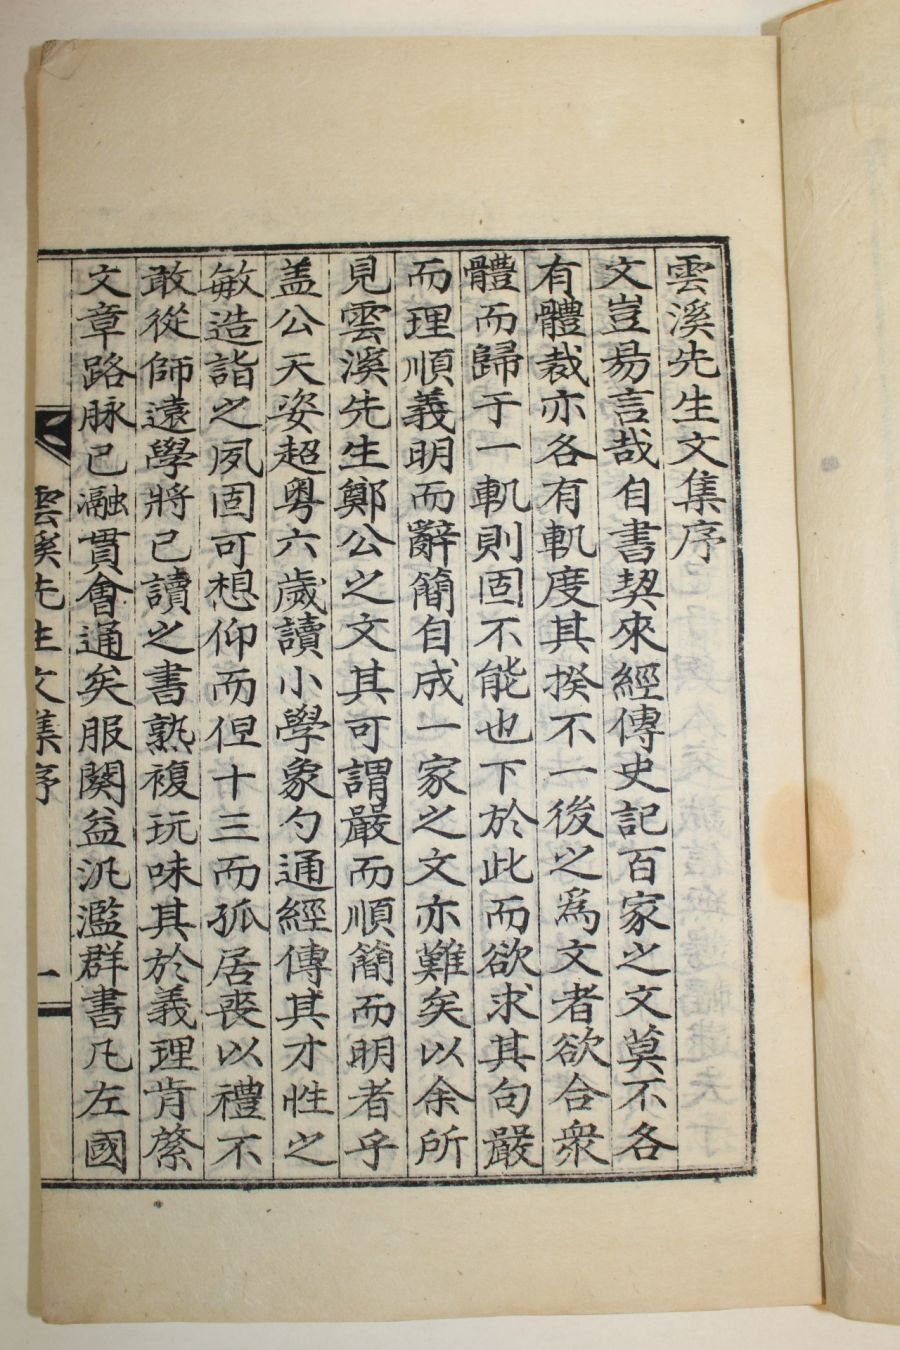 雲溪先生文集序
文豈易言哉自書契來經傳史記百家之文莫不各
有體裁亦各有軌度其揆不一後之爲文者欲合衆
體而歸于一軌則固不能也下於此而欲求其句嚴
而理順義明而辭簡自成一家之文亦難矣以余所
見雲溪先生鄭公之文其可謂嚴而順簡而明者乎
盖公天姿超粤六歲讀小學象勺通經傳其才性之
敏造詣之夙固可想仰而但十三而孤居丧以禮不
敢從師遠學將已讀之書熟複玩味其於義理肯綮
文章路脉已瀜貫會通矣服闋益汎濫群書凡左國
雲溪先生文集序
一